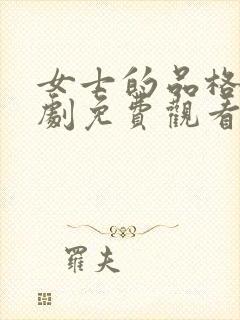 女士的品格
劇免費觀看
羅夫